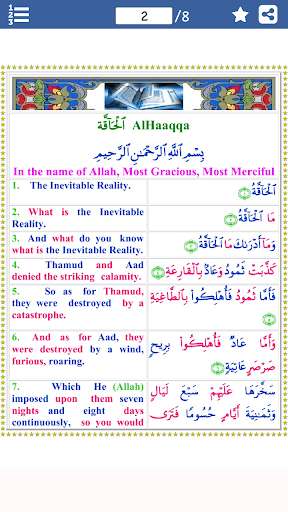 1
2
3
2 /8
ٱلْحَاقَّةُ AlHaaqqa
بِسْمِ ٱللَّهِ ٱلرَّحْمَٰنِ ٱلرَّحِيمِ
In the name of Allah, Most Gracious, Most Merciful
1. The Inevitable Reality.
ٱلْحَاقَّةُ ١
2. What is the Inevitable
Reality.
مَا ٱلْحَاقَّةُ ٢
3. And what do you know
what is the Inevitable Reality.
وَمَآ أَدْرَىٰكَ مَا ٱلْحَاقَّةُ ٣
4. Thamud and Aad
denied the striking calamity.
كَذَّبَتْ ثَمُودُ وَعَادٌۢ بِٱلْقَارِعَةِ ٤
5. So as for Thamud,
they were destroyed by a
catastrophe.
فَأَمَّا ثَمُودُ فَأُهْلِكُوا۟ بِٱلطَّاغِيَةِ
٥
6. And as for Aad, they
were destroyed by a wind,
furious, roaring.
وَأَمَّا عَادٌ فَأُهْلِكُوا۟ بِرِيحٍ
صَرْصَرٍ عَاتِيَةٍ ٦
7. Which He (Allah)
imposed upon them seven
nights and eight days
continuously, so you would
سَخَّرَهَا عَلَيْهِمْ سَبْعَ لَيَالٍ
وَثَمَٰنِيَةَ أَيَّامٍ حُسُومًا فَتَرَى